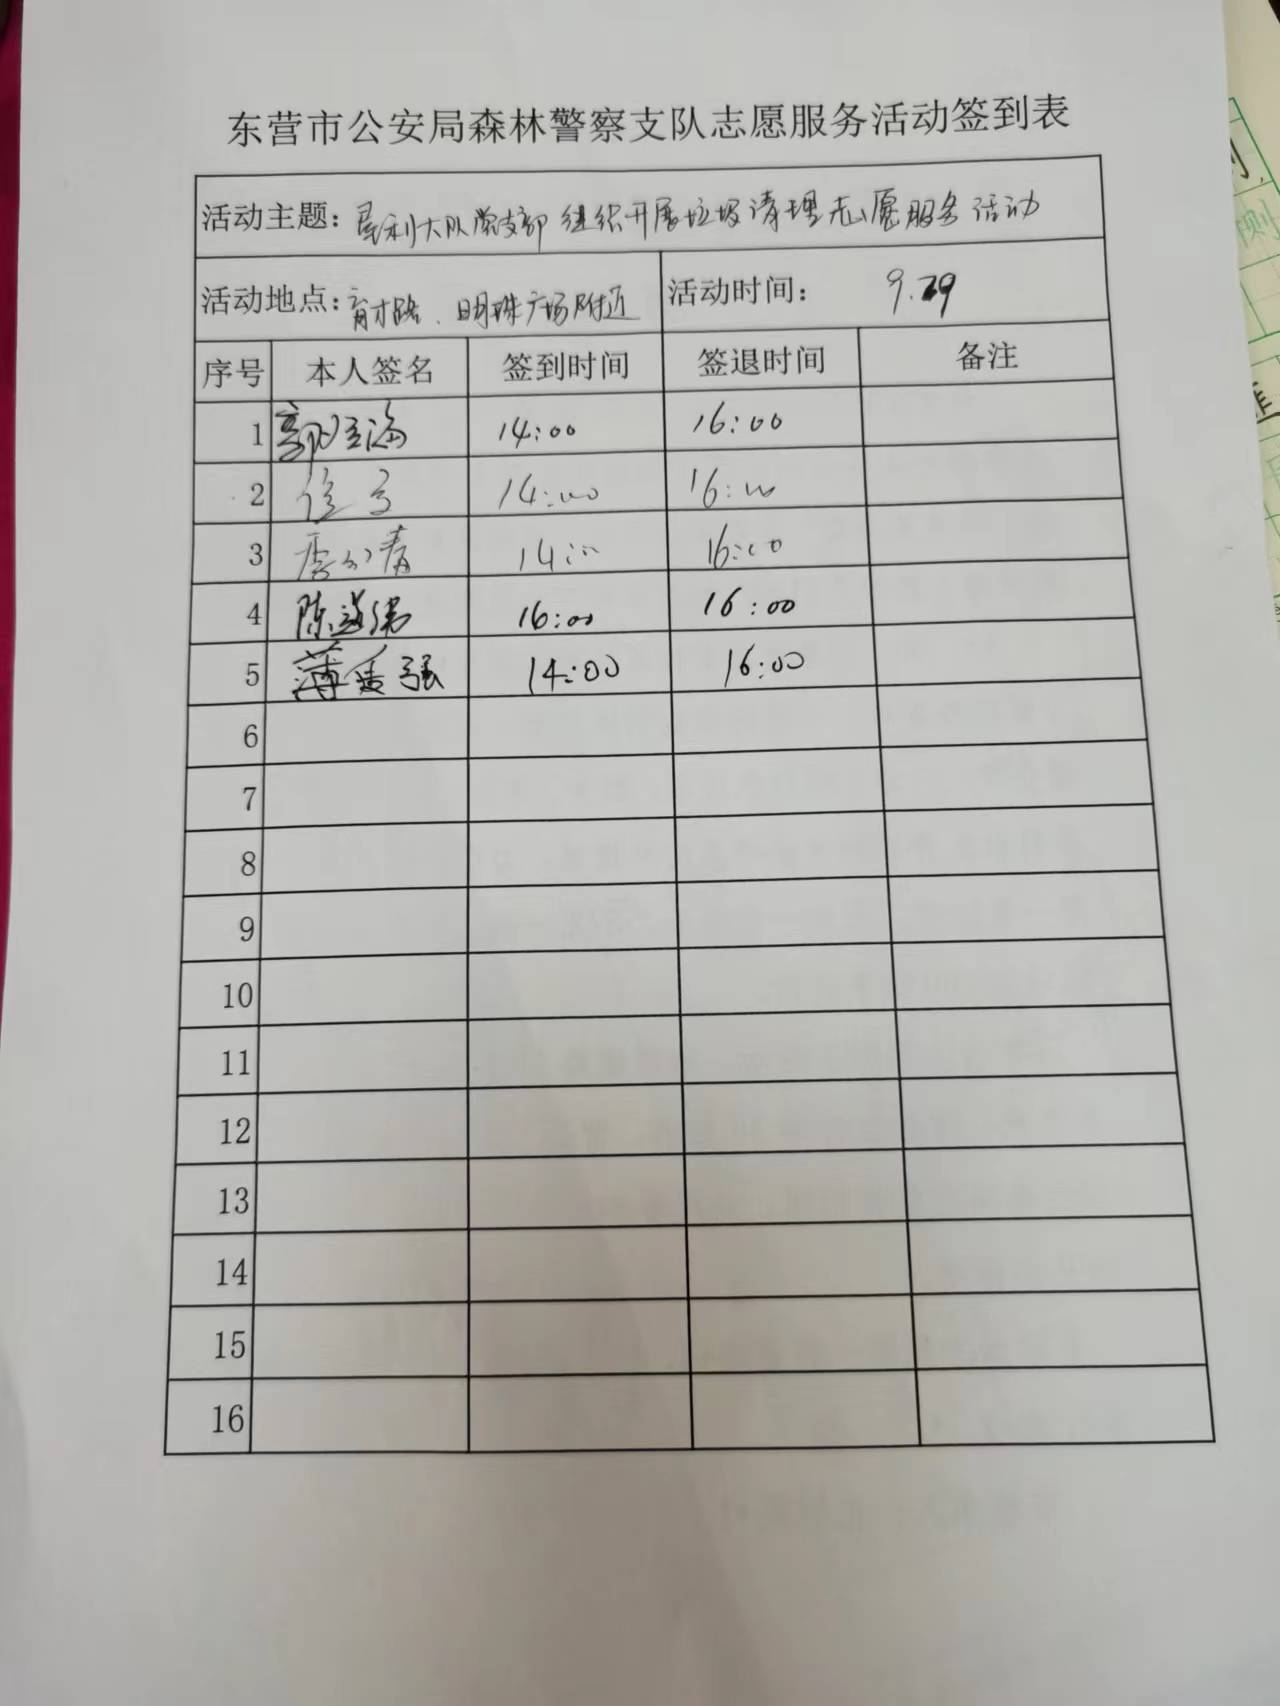 东营市公安局森林警察支队志愿服务活动签到表
活动主题：垦利大队党支部组织开展垃圾清理志愿服务活动
活动地点：育才路、明珠广场附近 活动时间： 9.29
序号 本人签名 签到时间 签退时间 备注
1 14:00 16:00
2 14:00 16:00
3 14:00 16:00
4 陈 16:00 16:00
5 薄 强 14:00 16:00
6
7
8
9
10
11
12
13
14
15
16